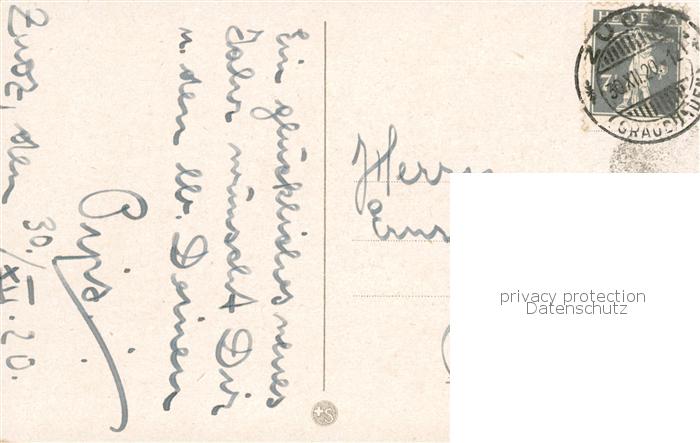 Ein glückliches neues
Jahr wünscht Dir
u. den lb. Deinen
Zuoz, den 30./XII.20.
Herrn
HELVETIA
ZUOZ
30.XII.20.
(GRAUBÜNDEN)
+S
privacy protection
Datenschutz